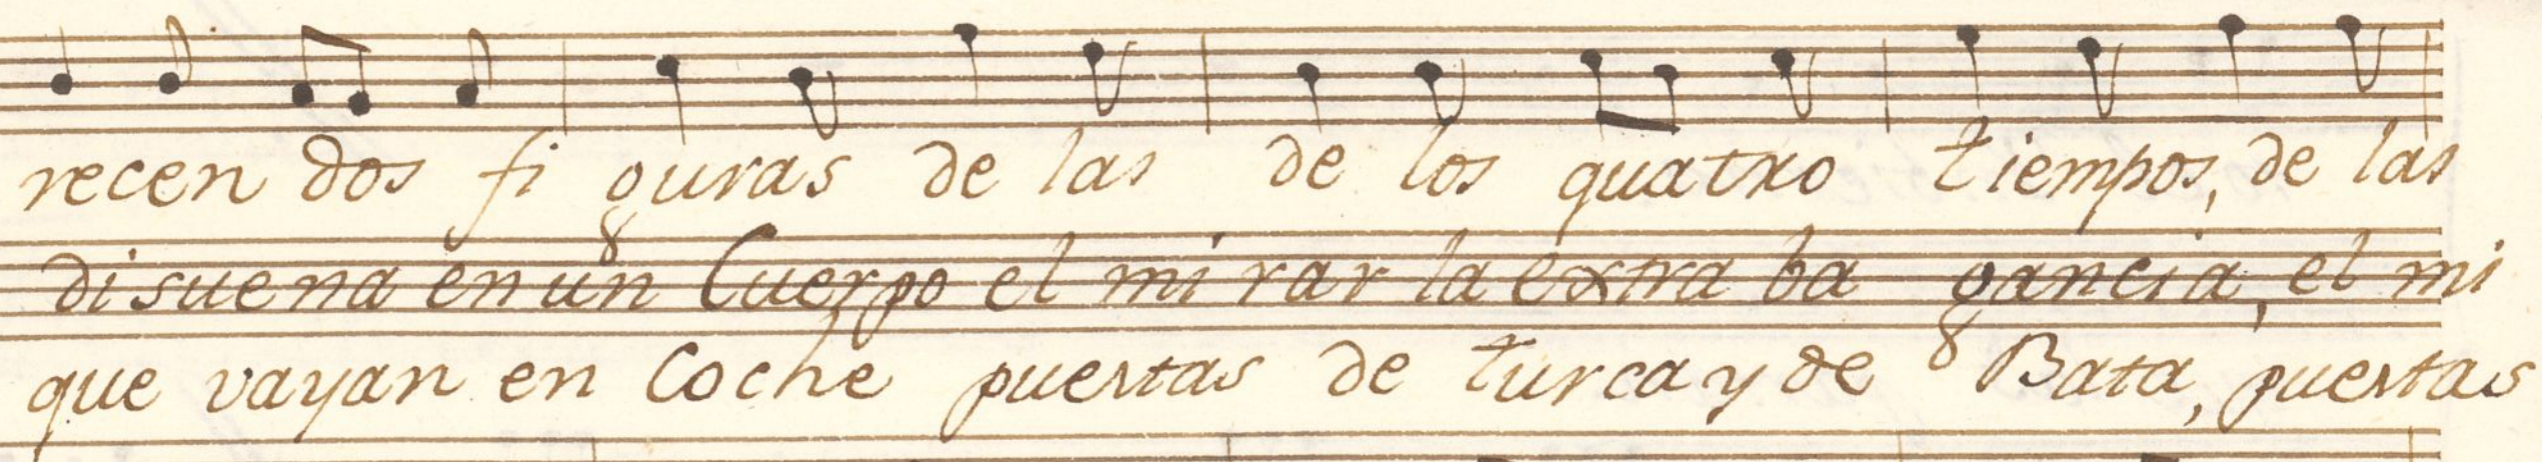 recen dos fi guras de las de los quatro tiempos, de las
disuena en un Cuerpo el mi rar la extra ba gancia, el mi
que vayan en Coche puestas de turca y de Bata, puestas